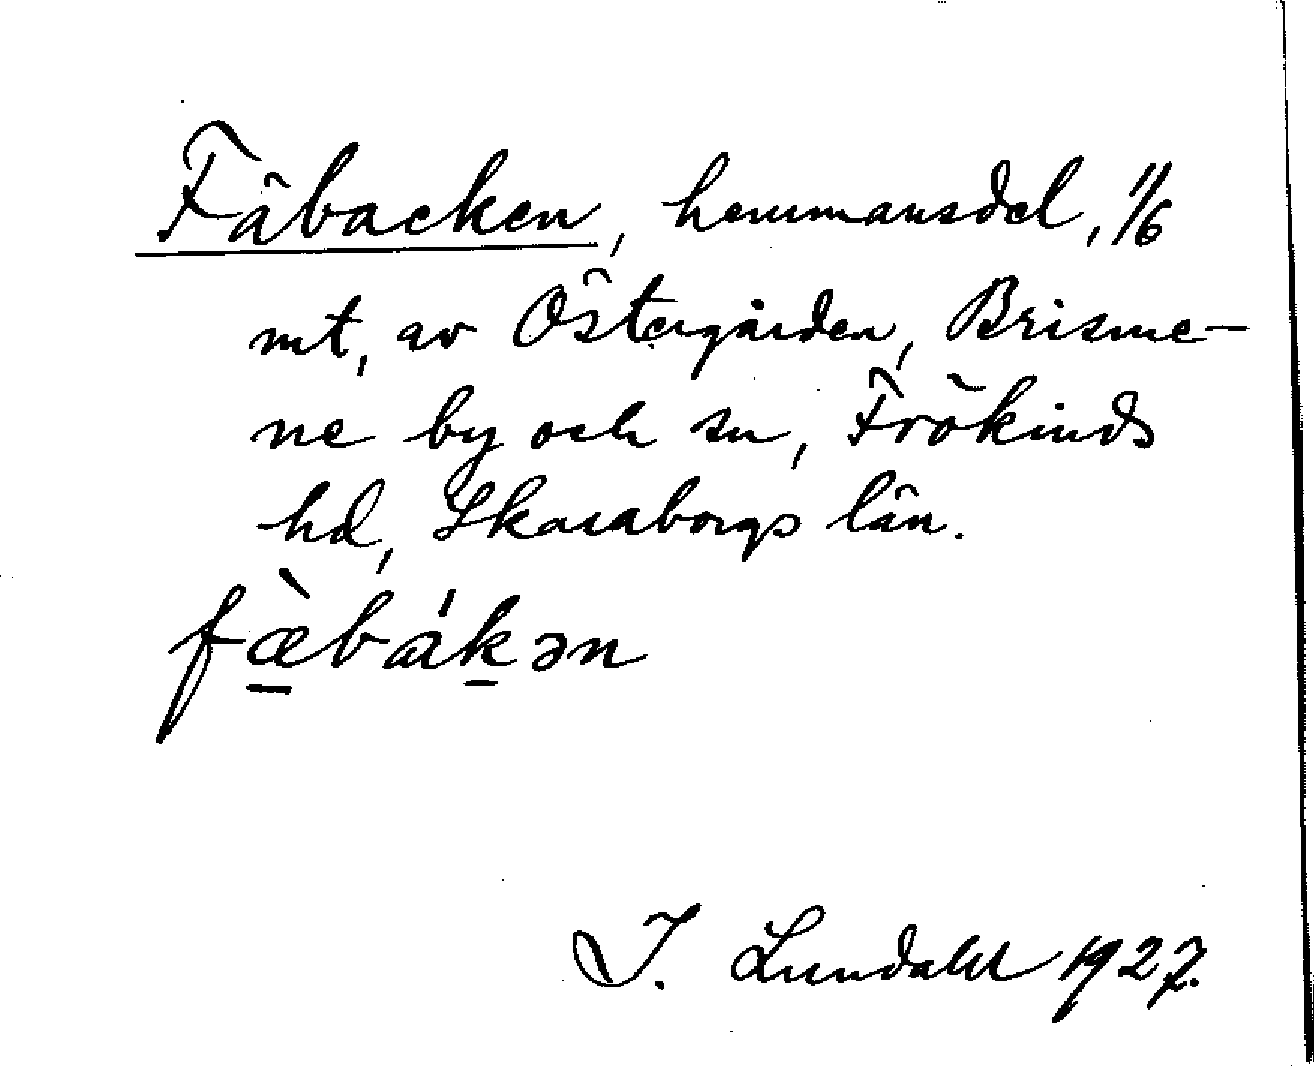 Fäbacken, hemmansdel, 1/6
mt, av Östergården, Brisme-
ne by och sn, Frökinds
hd, Skaraborgs län.
fæ̠̀bák̠ən
I. Lundahl 1927.